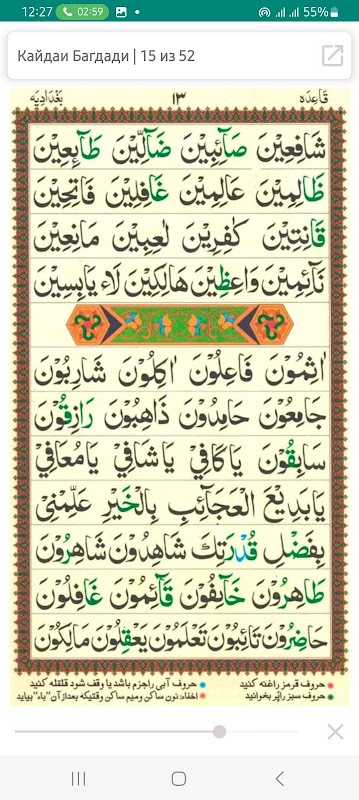 12:27 02:59 55%
Кайдаи Багдади | 15 из 52
قاعِدَه ١٣ بَغْدَادِيَه
شَافِعِيْنَ صَآئِمِيْنَ ضَآلِّيْنَ طَآئِعِيْنَ
ظَالِمِيْنَ عَالِمِيْنَ غَافِلِيْنَ فَاتِحِيْنَ
قَانِتِيْنَ كٰفِرِيْنَ لٰعِبِيْنَ مَانِعِيْنَ
نَآئِمِيْنَ وَاعِظِيْنَ هَالِكِيْنَ لَاء يَابِسِيْنَ
اٰثِمُوْنَ فَاعِلُوْنَ اٰكِلُوْنَ شَارِبُوْنَ
جَامِعُوْنَ حَامِدُوْنَ ذَاهِبُوْنَ رَازِقُوْنَ
سَابِقُوْنَ يَاكَافِيْ يَاشَافِيْ يَامُعَافِيْ
يَابَدِيْعَ الْعَجَآئِبِ بِالْخَيْرِ عَلِّمْنِيْ
بِفَضْلِ قُدْرَتِكَ شَاهِدُوْنَ شَاهِرُوْنَ
طَاهِرُوْنَ خَآئِفُوْنَ قَآئِمُوْنَ غَافِلُوْنَ
حَاضِرُوْنَ تَائِبُوْنَ تَعْلَمُوْنَ يَعْقِلُوْنَ مَالِكُوْنَ
حروف قرمز راغنه کنید حروف آبی راجزم باشد یا وقف شود قلقله کنید
حروف سبز راپُر بخوانید اخفاء نون ساکن ومیم ساکن وقتیکه بعدازآن "باء" بیاید